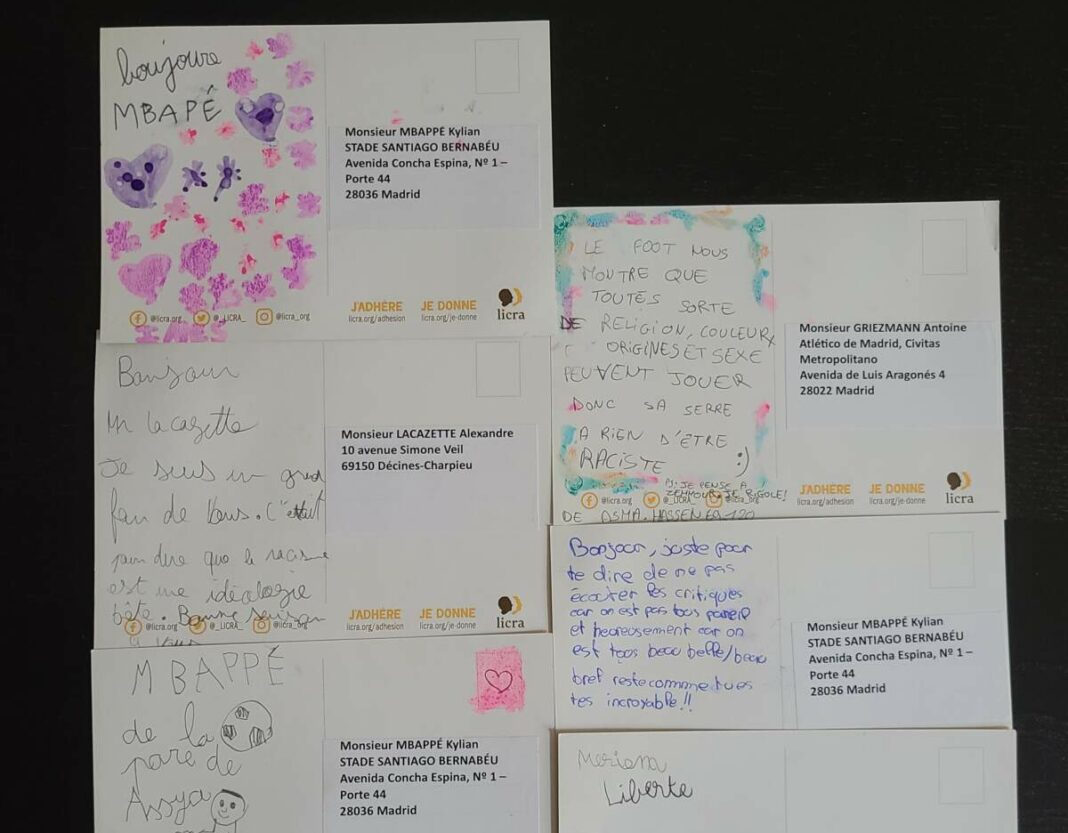 boujoure
MBAPÉ
Monsieur MBAPPÉ Kylian
STADE SANTIAGO BERNABÉU
Avenida Concha Espina, Nº 1 –
Porte 44
28036 Madrid
@licra.org @_LICRA_ @licra_org
J'ADHÈRE
licra.org/adhesion
JE DONNE
licra.org/je-donne
licra
INES
Bonjour
Mr lacazette
Je suis un grand
fan de Vous. C'était
pour dire que le racisme
est une idéalogie
bête. Bonne saison
à vous
Monsieur LACAZETTE Alexandre
10 avenue Simone Veil
69150 Décines-Charpieu
@licra.org @_LICRA_ @licra_org
J'ADHÈRE
licra.org/adhesion
JE DONNE
licra.org/je-donne
licra
MBAPPÉ
de la
pare de
Assya
Monsieur MBAPPÉ Kylian
STADE SANTIAGO BERNABÉU
Avenida Concha Espina, Nº 1 –
Porte 44
28036 Madrid
LE FOOT NOUS
MONTRE QUE
TOUTES SORTE
DE RELIGION, COULEUR,
ORIGINES ET SEXE
PEUVENT JOUER
DONC SA SERRE
A RIEN D'ÊTRE
RACISTE :)
PS: JE PENSE A
ZEMMOUR, JE RIGOLE!
DE ASMA. HASSEN
Monsieur GRIEZMANN Antoine
Atlético de Madrid, Civitas
Metropolitano
Avenida de Luis Aragonés 4
28022 Madrid
@licra.org @_LICRA_ @licra_org
J'ADHÈRE
licra.org/adhesion
JE DONNE
licra.org/je-donne
licra
Bonjour, juste pour
te dire de ne pas
écouter les critiques
car on est pas tous pareil
et heureusement car on
est tous beau belle/beau
bref reste comme tu es
tes incroyable!!
Monsieur MBAPPÉ Kylian
STADE SANTIAGO BERNABÉU
Avenida Concha Espina, Nº 1 –
Porte 44
28036 Madrid
Meriam
Liberte